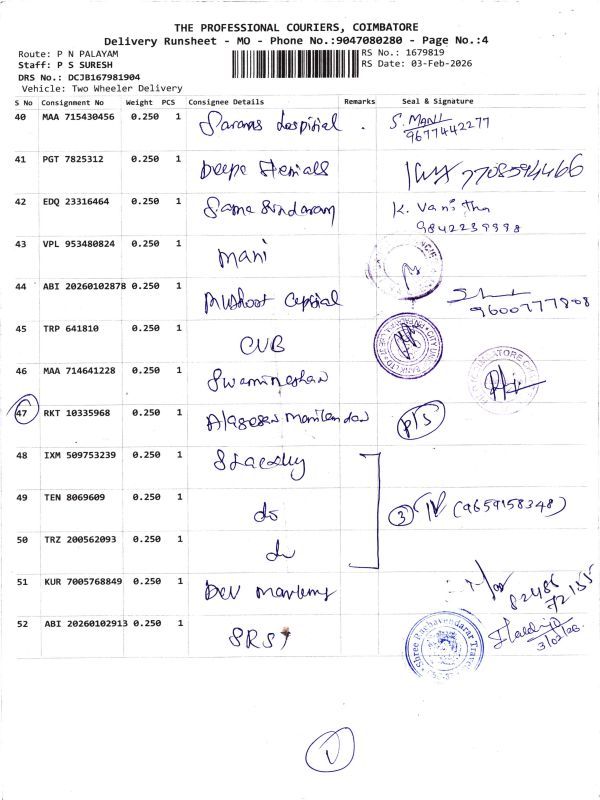 THE PROFESSIONAL COURIERS, COIMBATORE
Delivery Runsheet - MO - Phone No.:9047080280 - Page No.:4
Route: P N PALAYAM
RS No.: 1679819
Staff: P S SURESH
RS Date: 03-Feb-2026
DRS No.: DCJB167981904
Vehicle: Two Wheeler Delivery
S No Consignment No Weight PCS Consignee Details Remarks Seal & Signature
40 MAA 715430456 0.250 1 S. MANI
9677442277
41 PGT 7825312 0.250 1 Deepa 7708594466
42 EDQ 23316464 0.250 1 Sundaram K. Vanitha
9842239998
43 VPL 953480824 0.250 1 Mani
44 ABI 20260102878 0.250 1 Muthoot Capital
9600777808
45 TRP 641810 0.250 1 CUB
46 MAA 714641228 0.250 1
47 RKT 10335968 0.250 1 P/S
48 IXM 509753239 0.250 1
49 TEN 8069609 0.250 1 do 3 (9659158348)
50 TRZ 200562093 0.250 1 do
51 KUR 7005768849 0.250 1 Dev
82486
72155
52 ABI 20260102913 0.250 1 SRST
Shree Raghavendarar Travel
3/02/26